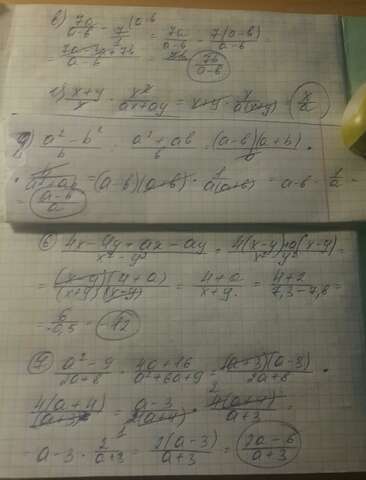 в) 7a/(a-b) - 7/1 (a-b = 7a/(a-b) - 7(a-b)/(a-b) =
= (7a-7a+7b)/(a-b) = 7b/(a-b)
г) (x+y)/x · x²/(ax+ay) = x+y · x/(a(x+y)) = x/a
(a²-b²)/b : (a²+ab)/b = ((a-b)(a+b))/b ·
· b/(a²+ab) = (a-b)(a+b) · 1/(a(a+b)) = a-b · 1/a =
= (a-b)/a
6) (4x-4y+ax-ay)/(x²-y²) = (4(x-y)+a(x-y))/(x²-y²) =
= ((x-y)(4+a))/((x+y)(x-y)) = (4+a)/(x+y) = (4+2)/(7,3-7,8) =
= 6/(-0,5) = -12
7) (a²-9)/(2a+8) · (4a+16)/(a²+6a+9) = ((a+3)(a-3))/(2a+8) ·
· 4(a+4)/(a+3)² = (a-3)/(2(a+4)) · 4(a+4)/(a+3) =
= a-3 · 2/(a+3) = 2(a-3)/(a+3) = (2a-6)/(a+3)